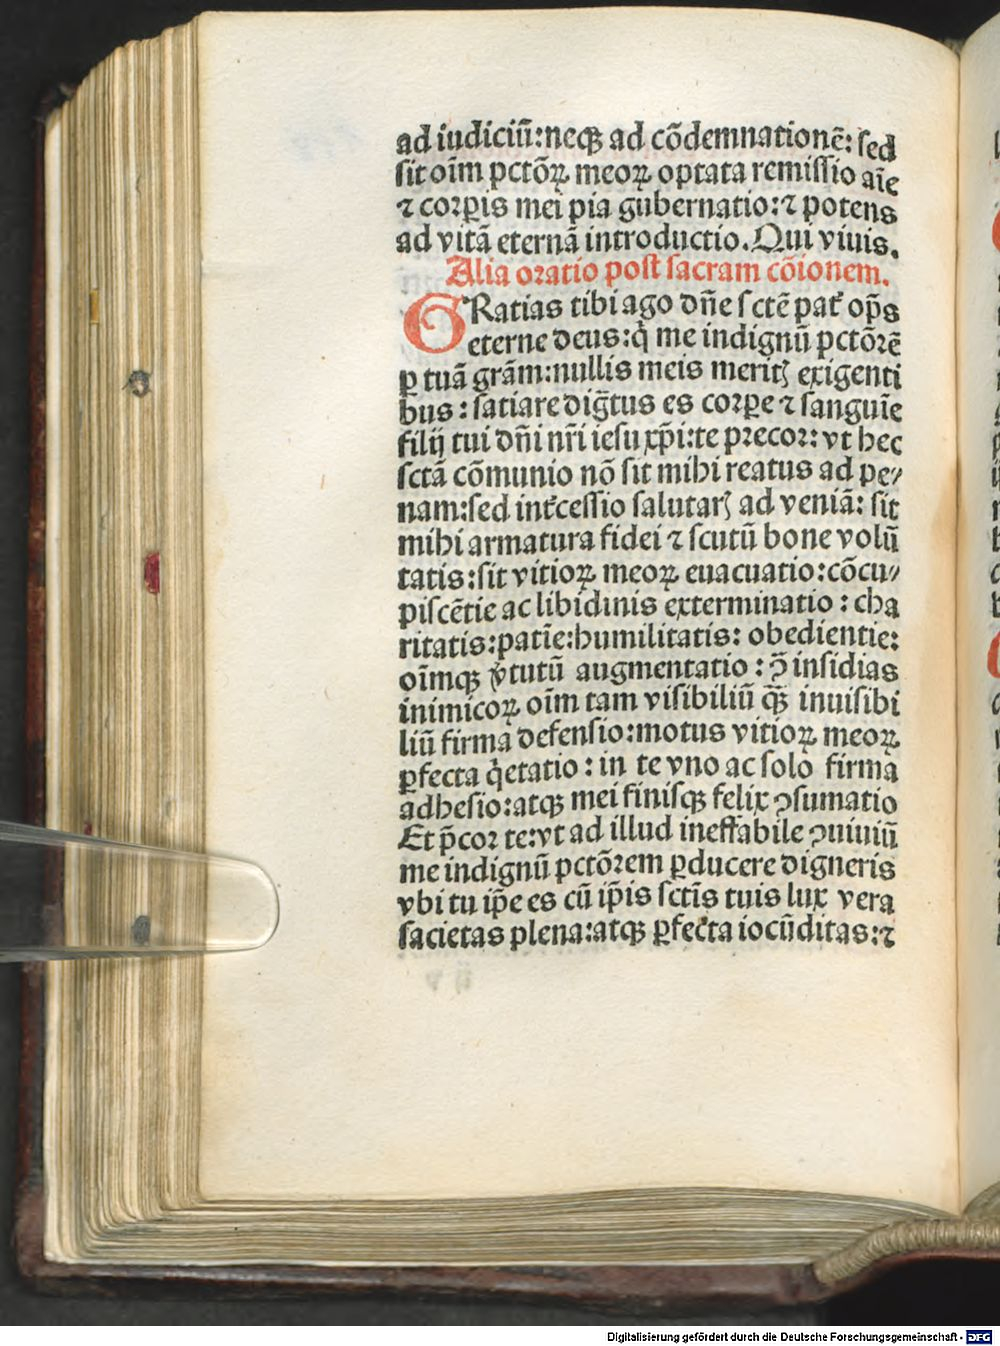 ad iudiciū: neqꝫ ad cōdemnationē: sed
sit oīm pctōꝝ meoꝝ optata remissio aīe
⁊ coꝛꝑis mei pia gubernatio: ⁊ potens
ad vitā eternā introductio. Qui viuis.
Alia oꝛatio post sacram cōionem.
GRatias tibi ago dn̄e sctē pat̄ op̄s
eterne deus: q̇ me indignū pctōꝛē
ꝑ tuā grām: nullis meis meritꝭ exigenti
bus: satiare diḡtus es coꝛꝑe ⁊ sanguīe
filij tui dn̄i nr̄i iesu xp̄i: te pꝛecoꝛ: vt hec
sctā cōmunio nō sit mihi reatus ad pe⸗
nam: sed int̄cessio salutarꝭ ad veniā: sit
mihi armatura fidei ⁊ scutū bone volū
tatis: sit vitioꝝ meoꝝ euacuatio: cōcu⸗
piscētie ac libidinis exterminatio: cha
ritatis: patīe: humilitatis: obedientie:
oīmqꝫ v̓tutū augmentatio: ꝯ̄ insidias
inimicoꝝ oīm tam visibiliū qꝫ̄ inuisibi
liū firma defensio: motus vitioꝝ meoꝝ
ꝑfecta q̇etatio: in te vno ac solo firma
adhesio: atqꝫ mei finisqꝫ felix ꝯsumatio
Et p̄coꝛ te: vt ad illud ineffabile ꝯuiuiū
me indignū pctōꝛem ꝑducere digneris
vbi tu ip̄e es cū ip̄is sctīs tuis lux vera
sacietas plena: atqꝫ ꝑfecta iocūditas: ⁊
Digitalisierung gefördert durch die Deutsche Forschungsgemeinschaft - DFG